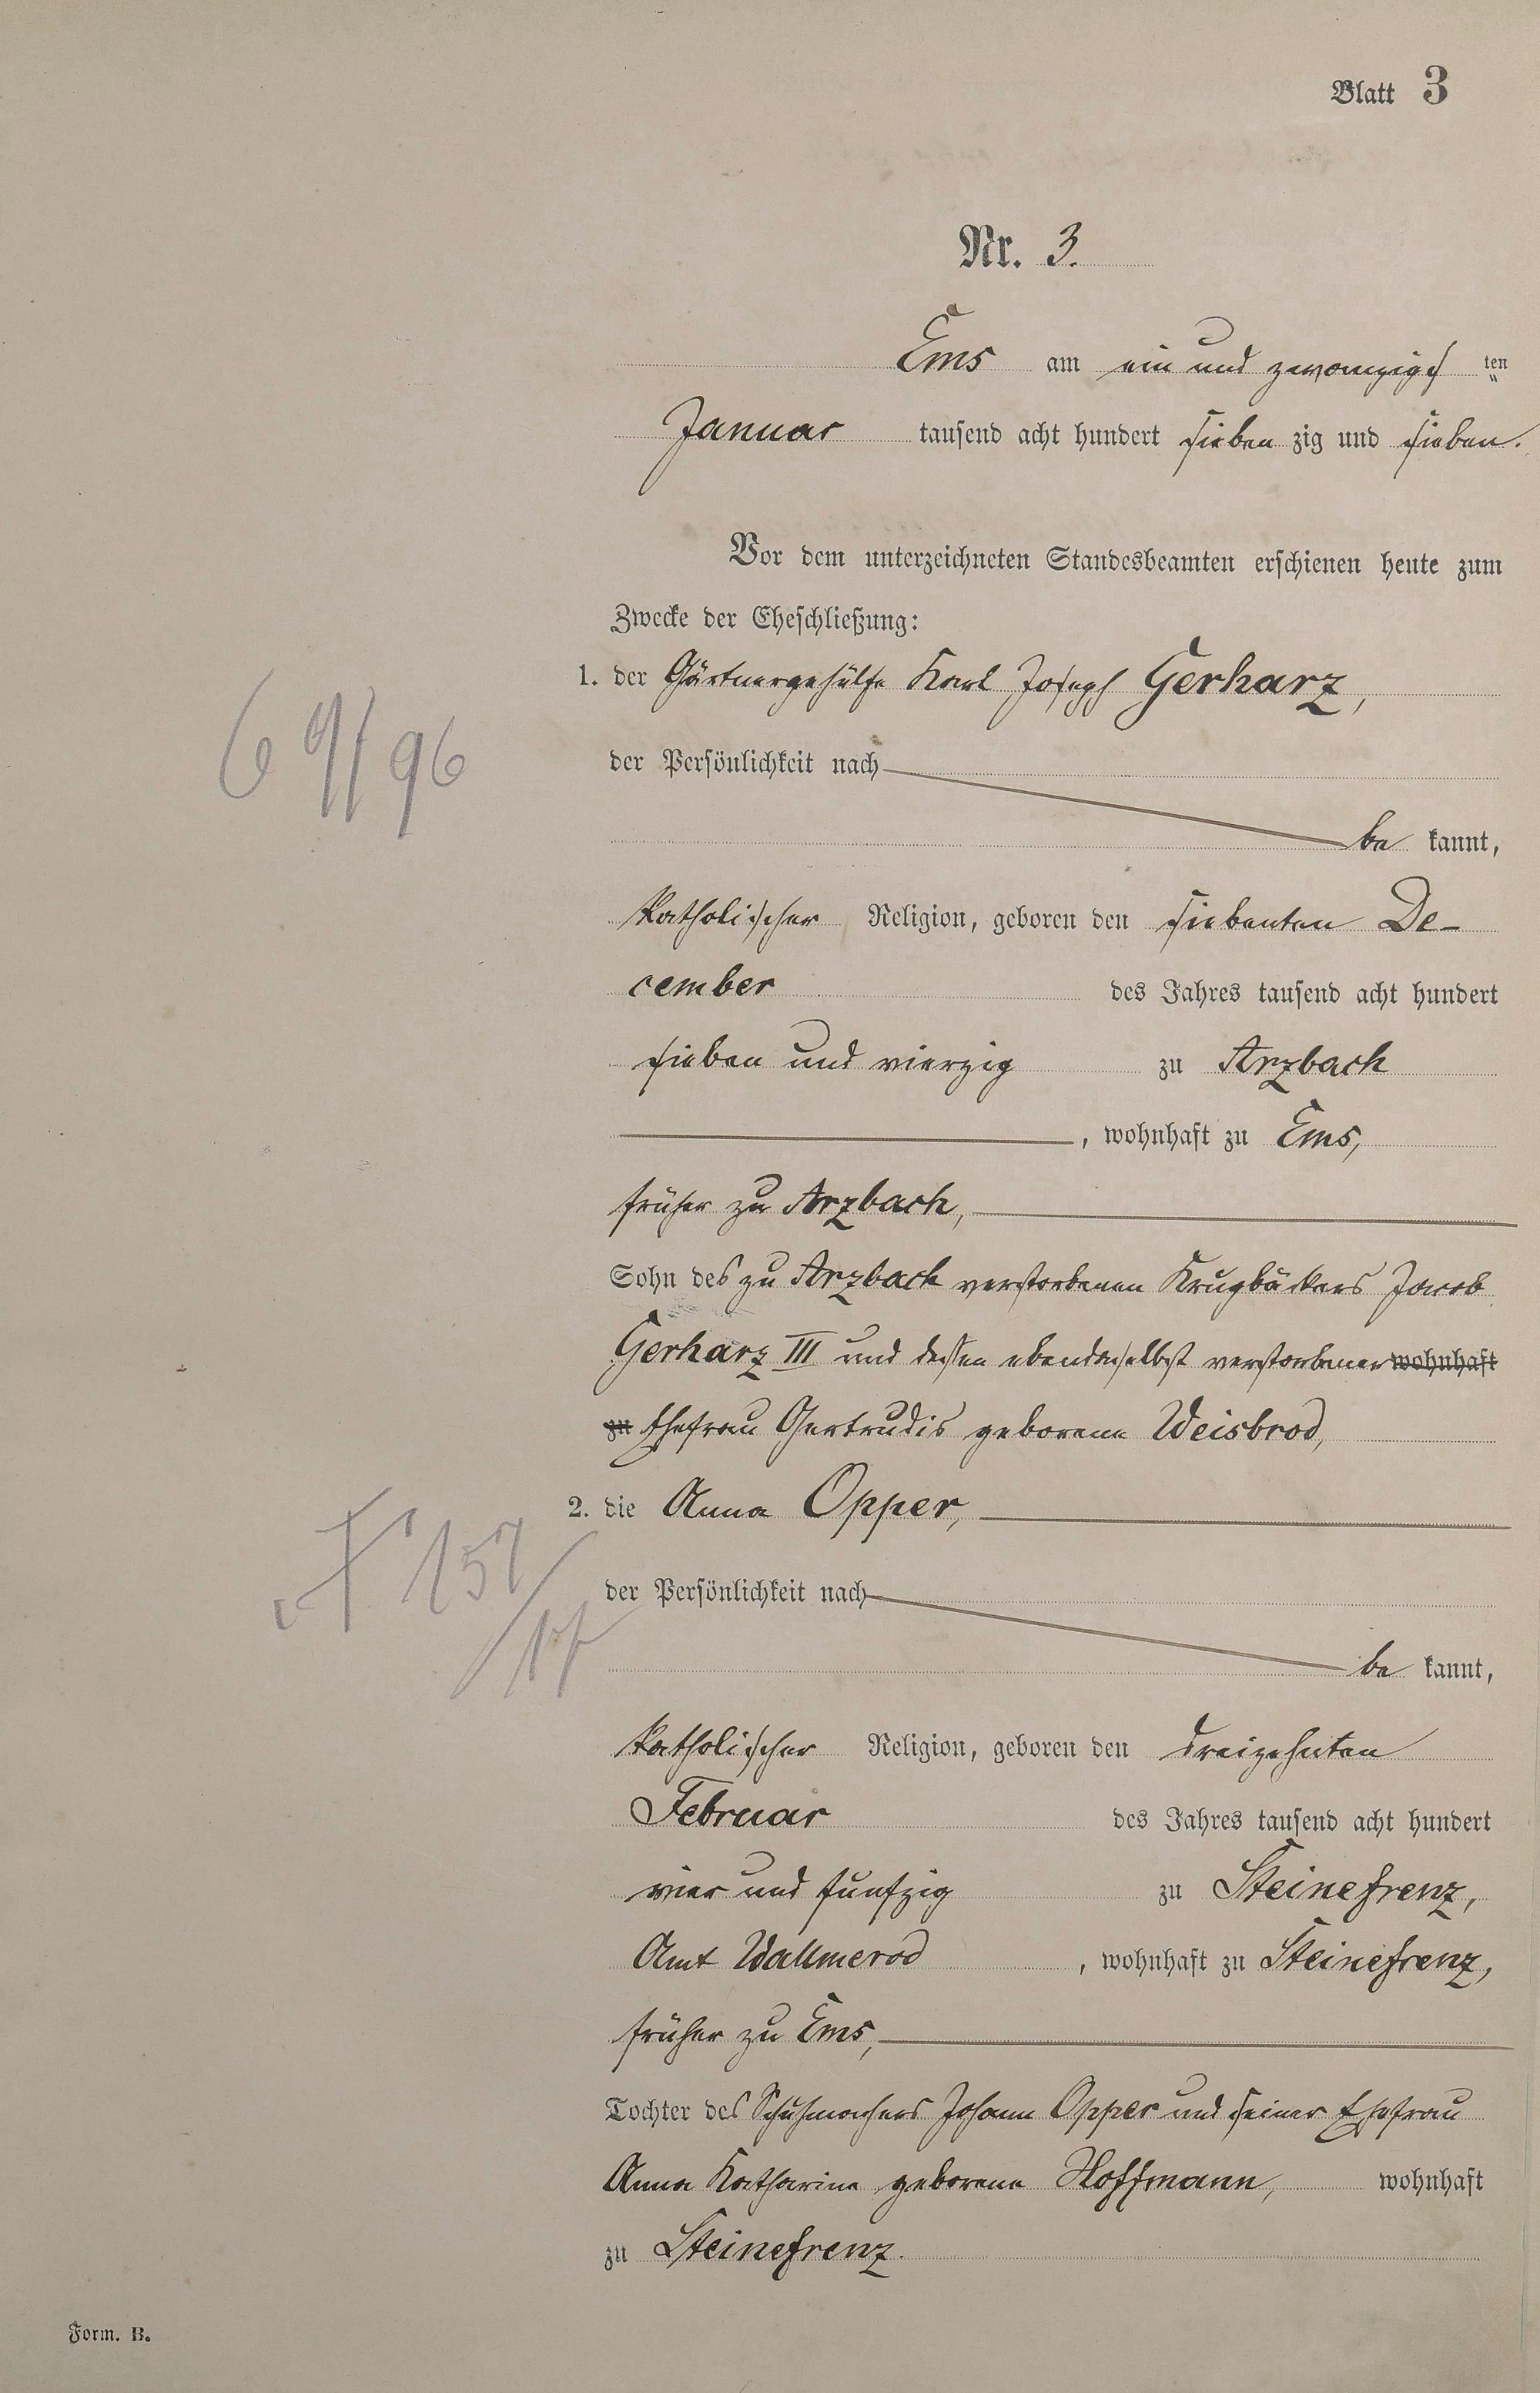 Blatt 3
Nr. 3.
Ems am ein und zwanzigsten
Januar tausend acht hundert sieben zig und sieben.
Vor dem unterzeichneten Standesbeamten erschienen heute zum
Zwecke der Eheschließung:
1. der Gärtnergehülfe Karl Joseph Gerharz,
der Persönlichkeit nach
be kannt,
katholischer Religion, geboren den siebenten De-
cember des Jahres tausend acht hundert
sieben und vierzig zu Arzbach
, wohnhaft zu Ems,
früher zu Arzbach,
Sohn des zu Arzbach verstorbenen Krugbäckers Jacob
Gerharz III und dessen ebendaselbst verstorbener wohnhaft
zu Ehefrau Gertrudis geborene Weisbrod,
2. die Anna Opper,
der Persönlichkeit nach
be kannt,
katholischer Religion, geboren den dreizehnten
Februar des Jahres tausend acht hundert
vier und funfzig zu Steinefrenz,
Amt Wallmerod , wohnhaft zu Steinefrenz,
früher zu Ems,
Tochter des Schuhmachers Johann Opper und seiner Ehefrau
Anna Katharina geborene Hoffmann, wohnhaft
zu Steinefrenz.
69/96
Form. B.